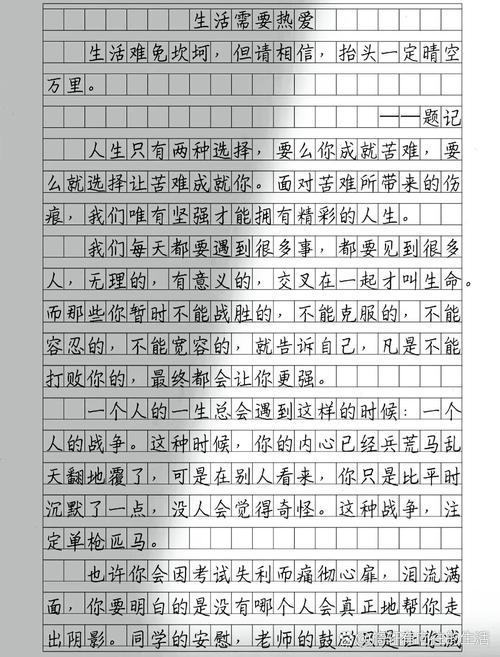 生活需要热爱
生活难免坎坷，但请相信，抬头一定晴空
万里。
——题记
人生只有两种选择，要么你成就苦难，要
么就选择让苦难成就你。面对苦难所带来的伤
痕，我们唯有坚强才能拥有精彩的人生。
我们每天都要遇到很多事，都要见到很多
人，无理的，有意义的，交叉在一起才叫生命。
而那些你暂时不能战胜的，不能克服的，不能
容忍的，不能宽容的，就告诉自己，凡是不能
打败你的，最终都会让你更强。
一个人的一生总会遇到这样的时候：一个
人的战争。这种时候，你的内心已经兵荒马乱
天翻地覆了，可是在别人看来，你只是比平时
沉默了一点，没人会觉得奇怪。这种战争，注
定单枪匹马。
也许你会因考试失利而痛彻心扉，泪流满
面，你要明白的是没有哪个人会真正地帮你走
出阴影。同学的安慰，老师的鼓励只是让你减